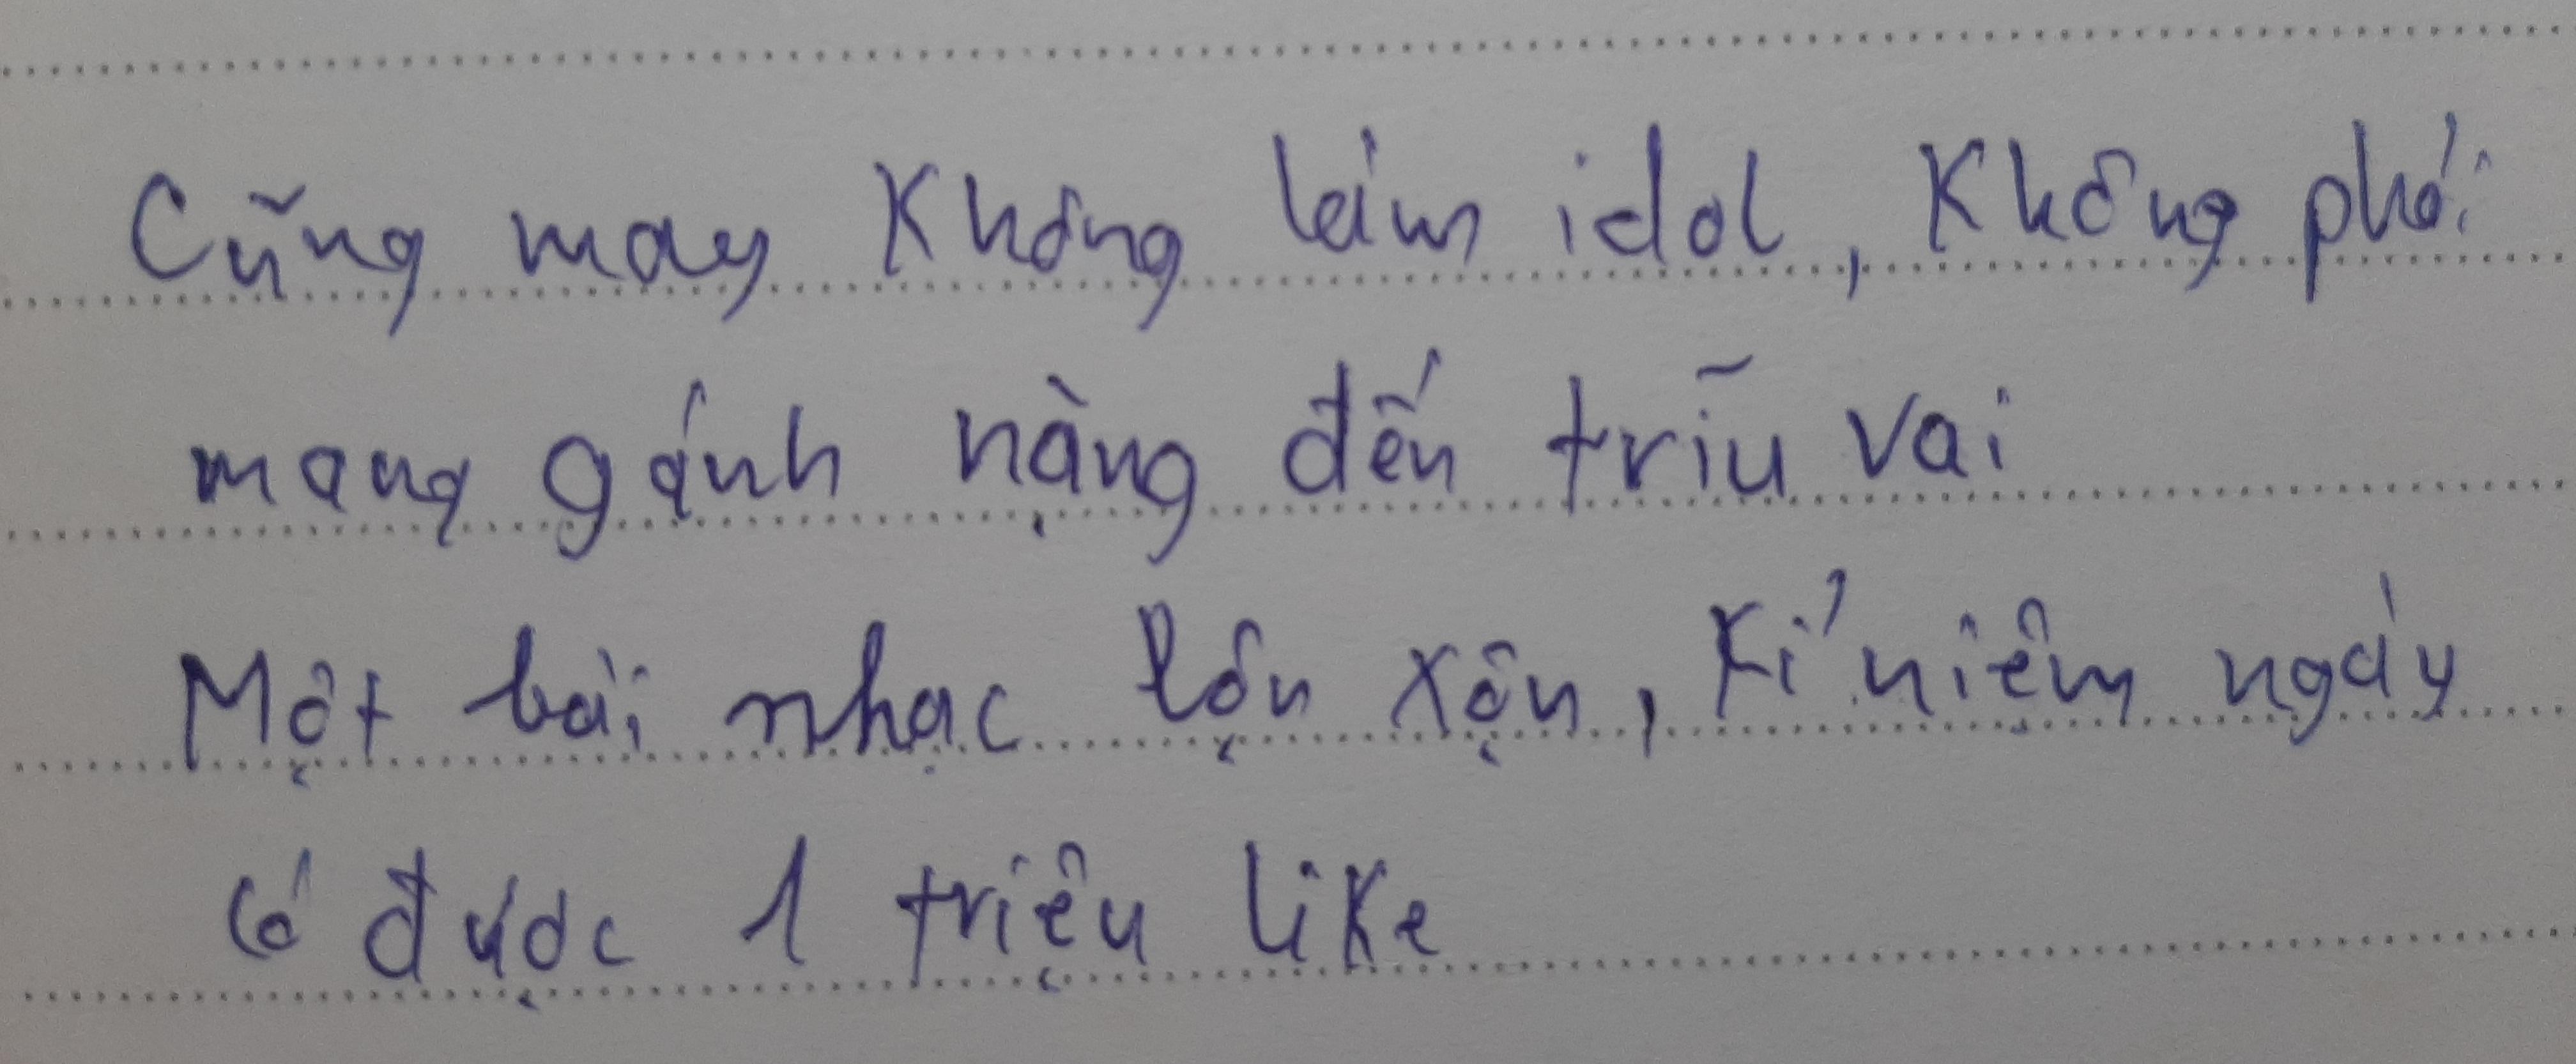 Cũng may không làm idol, không phải
mang gánh nặng đến trĩu vai
Một bài nhạc lộn xộn, kỉ niệm ngày
có được 1 triệu like